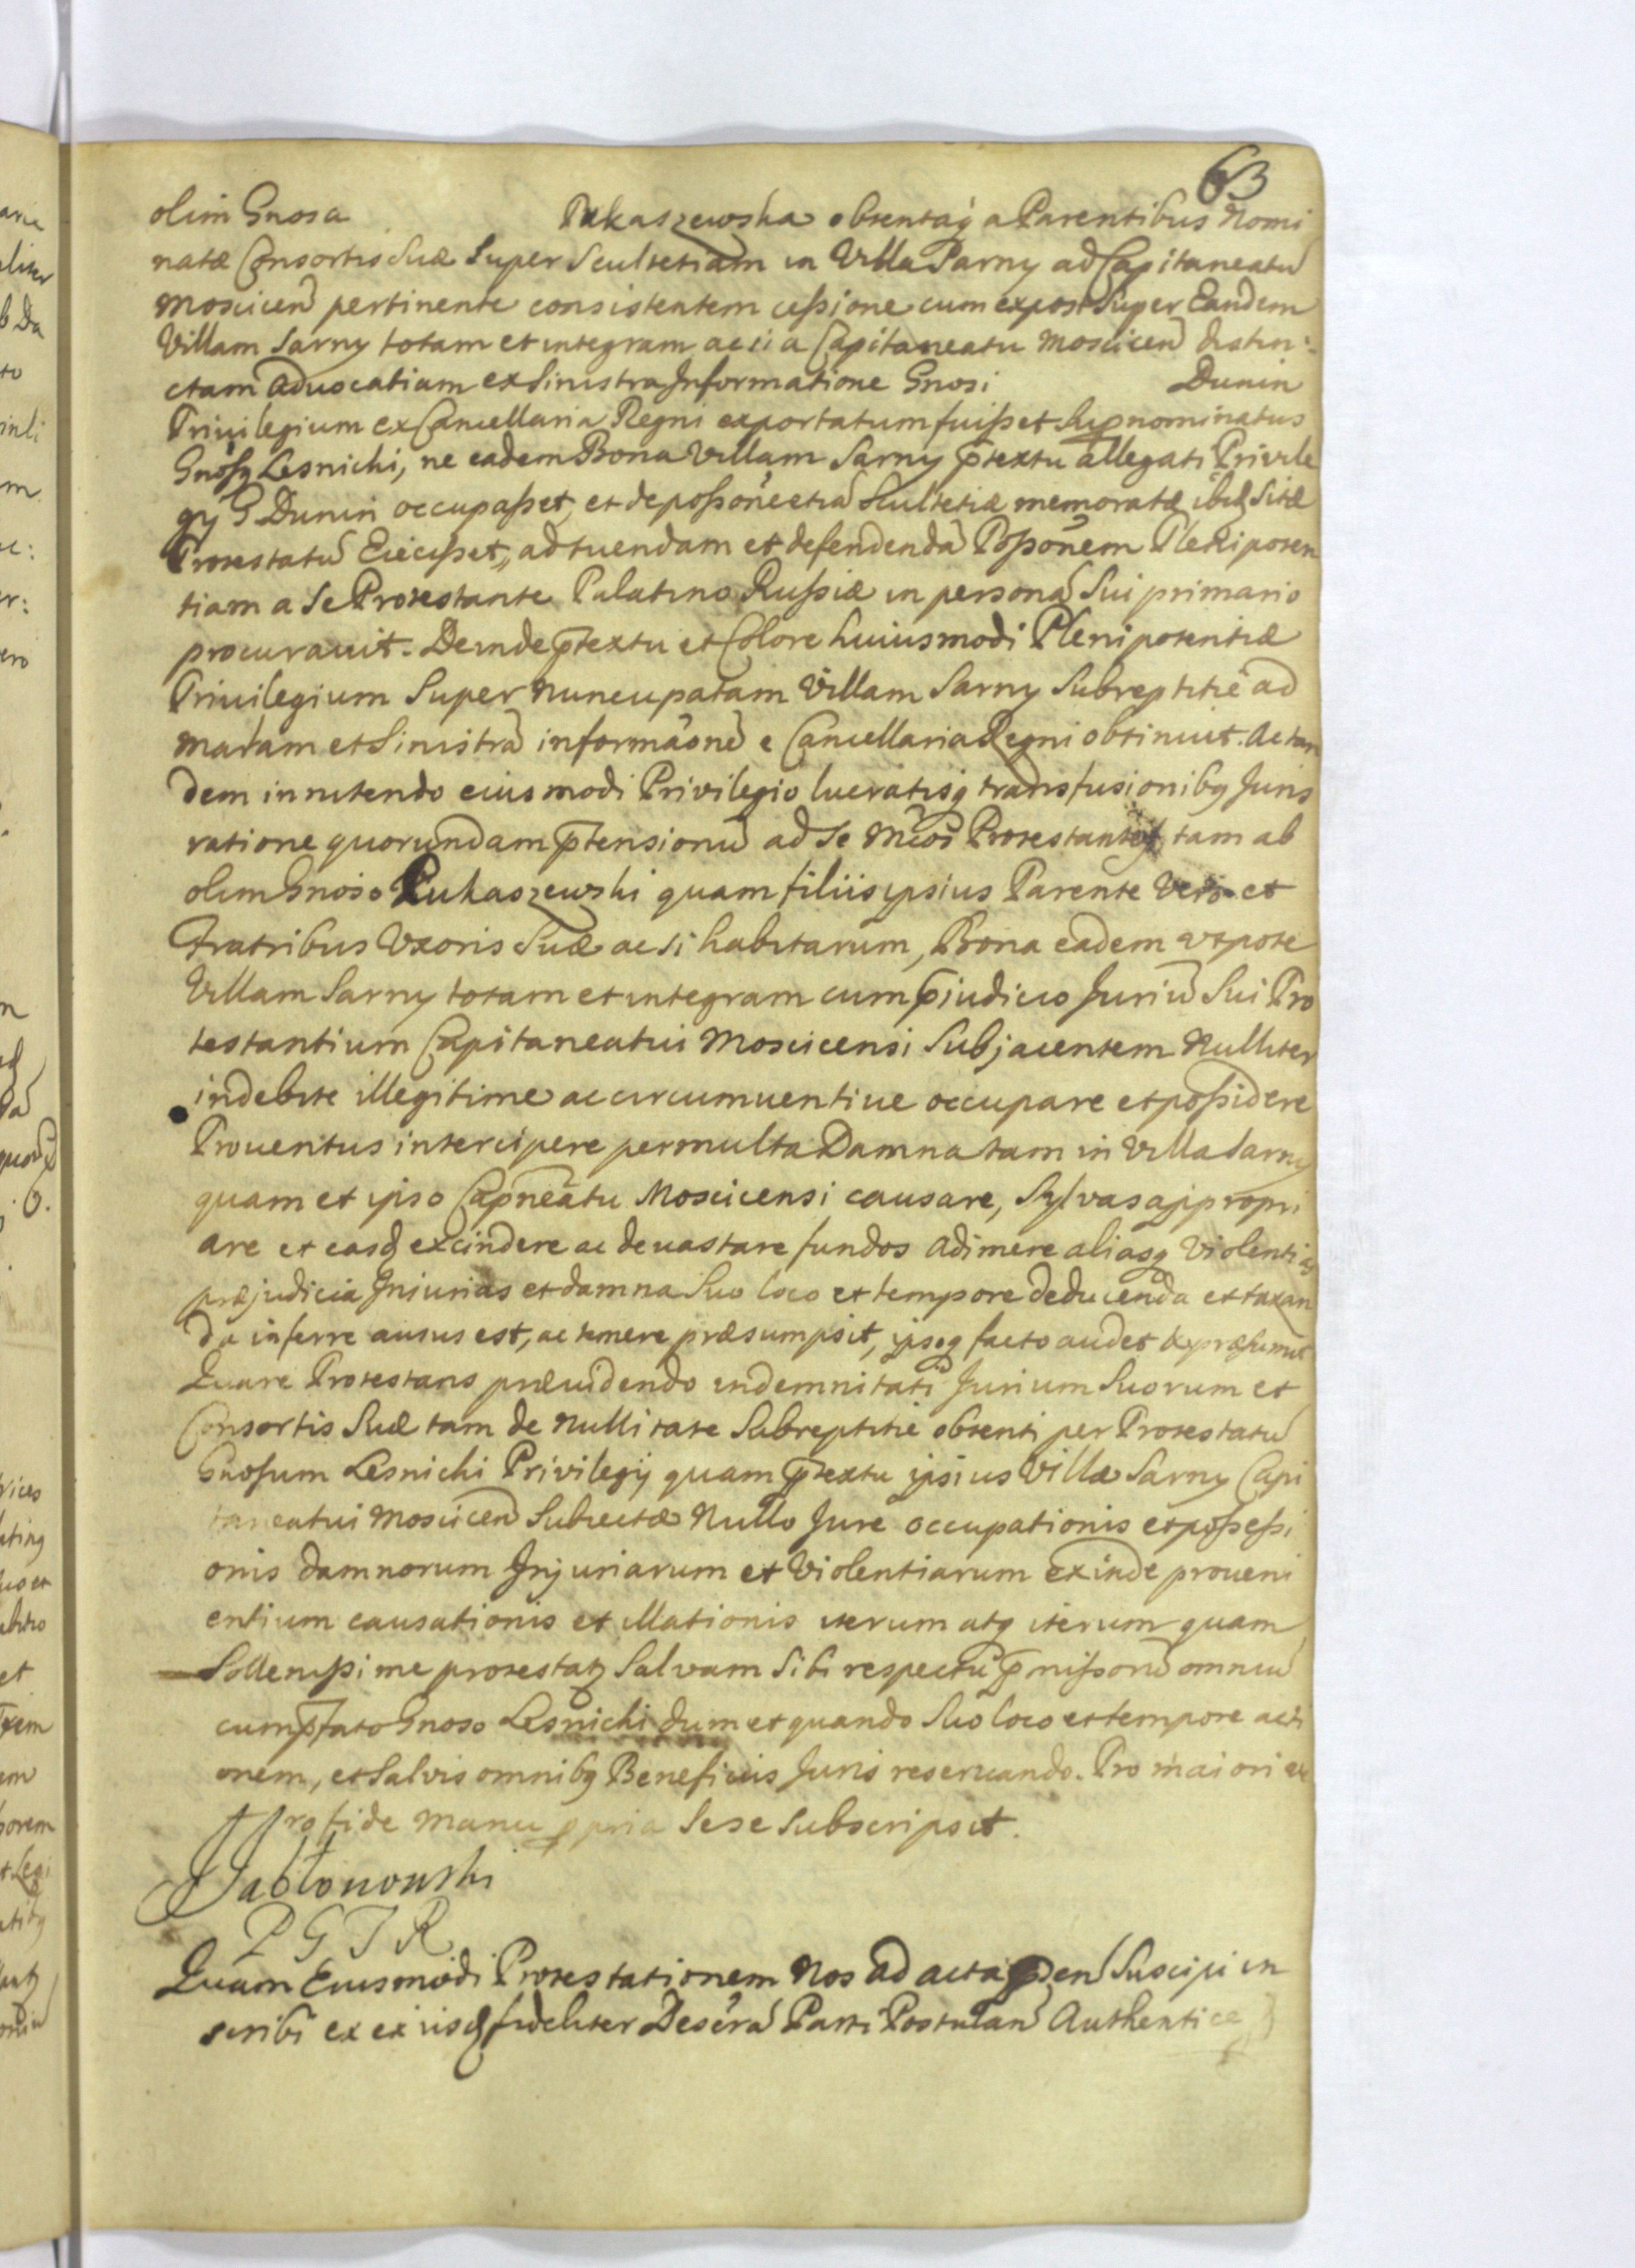 63
olim Gnosa Łukaszewska obtentaq a Parentibus Nomi
natæ Consortis Suæ Super Scultetiam in Villa Sarny ad Capitaneatū
Moscicen pertinente consistentem cessione cum expost Super Eandem
Villam Sarny totam et integram ac si a Capitaneatu Moscicen distin:
ctam Aduocatiam ex Sinistra Informatione Gnosi Dunin
Priuilegium ex Cancellaria Regni exportatum fuisset Supnominatus
Gnosq Lesnichi, ne eadem Bona Villam Sarny ptextu allegati Privile
gy G Dunin occupasset, et de possone etiā Scultetiæ memoratæ ibid Sitæ
Protestatū Eiecisset, ad tuendam et defendendā Possonem Plenipoten
tiam a Se Protestante Palatino Russiæ in personā Sui primario
procurauit. Deinde ptextu et Colore huiusmodi Plenipotentiæ
Priuilegium Super nuncupatam Villam Sarny Subreptitie ad
malam et Sinistrā informaonē e Cancellaria Regni obtinuit. Ac tan
dem innitendo eiusmodi Privilegio lucratisq transfusionibq Juris
ratione quorundam ptensionū ad Se Mcos Protestantes tam ab
olim Gnoso Łukaszewski quam filiis ipsius Parente Vero et
Fratribus Uxoris Suæ ac si habitarum, Bona eadem utpote
Villam Sarny totam et integram cum pjudicio Juriū Sui Pro
testantium Capitaneatui Moscicensi Subjacentem Nulliter
indebite illegitime ac circumuentiue occupare et possidere
Prouentus intercipere permulta Damna tam in Villa Sarny
quam et ipso Capneatu Moscicensi causare, Sylvas appropri
are et easq excindere ac deuastare fundos adimere aliasq Violentias
præjudicia Injurias et damna Suo loco et tempore deducenda et taxan
da inferre ausus est, ac temere præsumpsit, ipsoq facto audet et præsumit
Quare Protestans præuidendo indemnitati Jurium Suorum et
Consortis Suæ tam de Nullitate Subreptitie obtenti per Protestatū
Gnosum Lesnichi Privilegij quam ptextu ipsius Villæ Sarny Capi
taneatui Moscicen Subiectæ Nullo Jure occupationis et possessi
onis damnorum Injuriarum et Violentiarum Exinde proueni
entium causationis et illationis iterum atq iterum quam
Sollenissime protestatq Salvam Sibi respectu pmissorū omniū
cum pfato Gnoso Lesnichi dum et quando Suo loco et tempore acti
onem, et Salvis omnibq Beneficiis Juris reservando. Pro maiori
pro fide manu ppria Sese Subscripsit.
Jabłonowski
P G J R
Quam Eiusmodi Protestationem Nos ad acta pden Suscipi in
scribi ex eiisq fideliter Descrā Parti Postulan Authentice